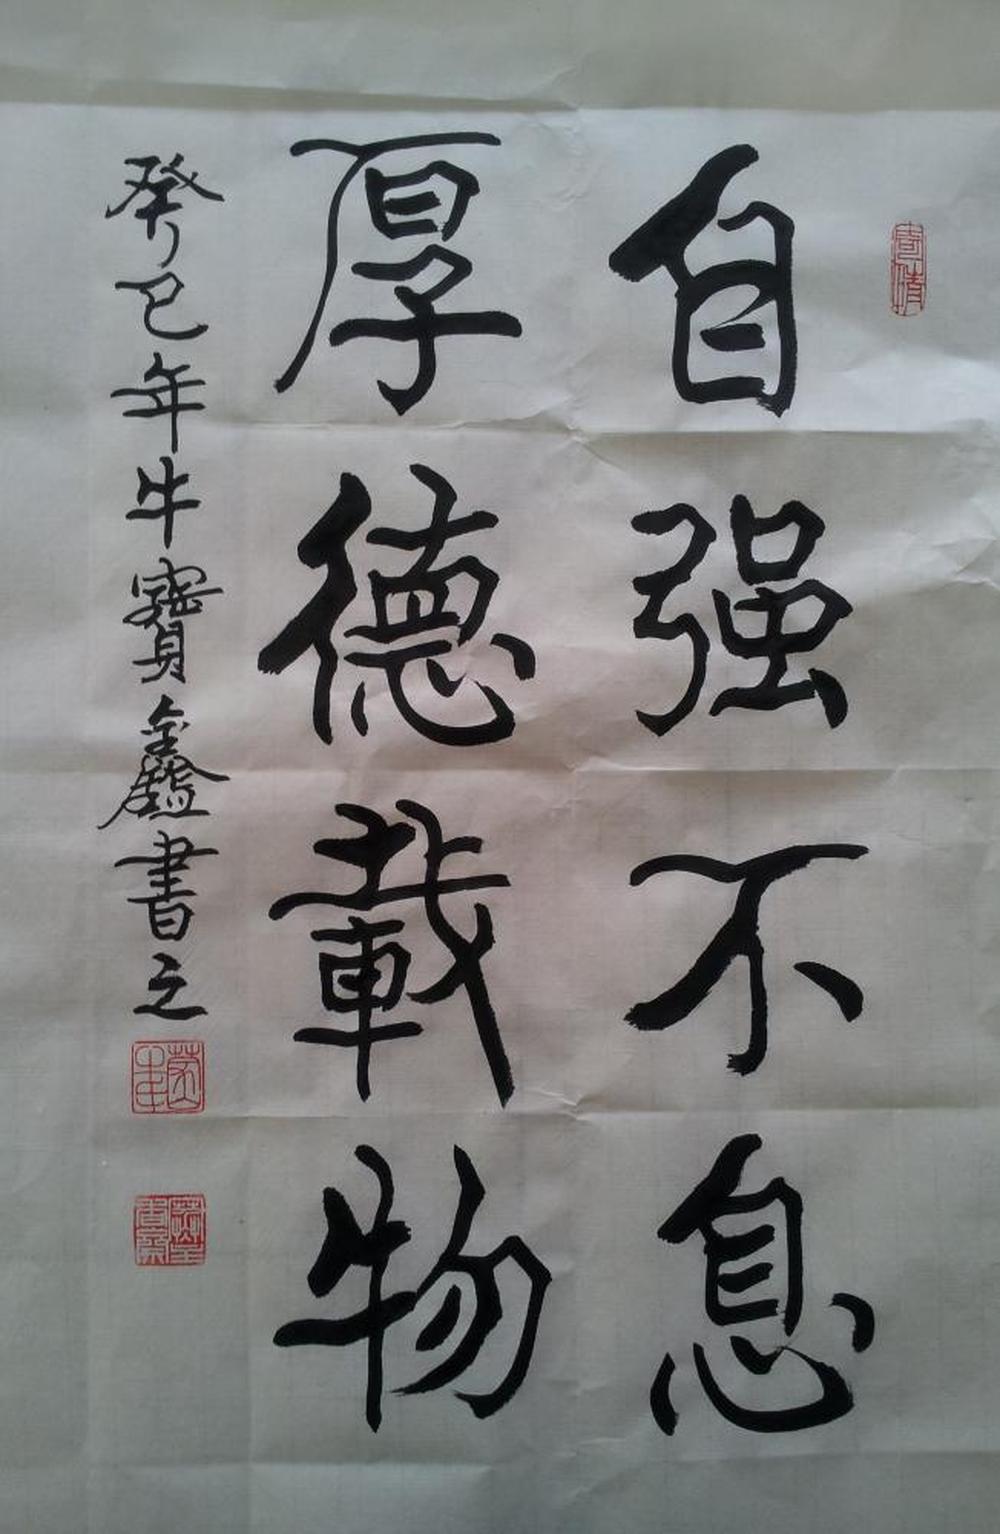 自强不息
厚德載物
癸巳年牛寶鑫書之